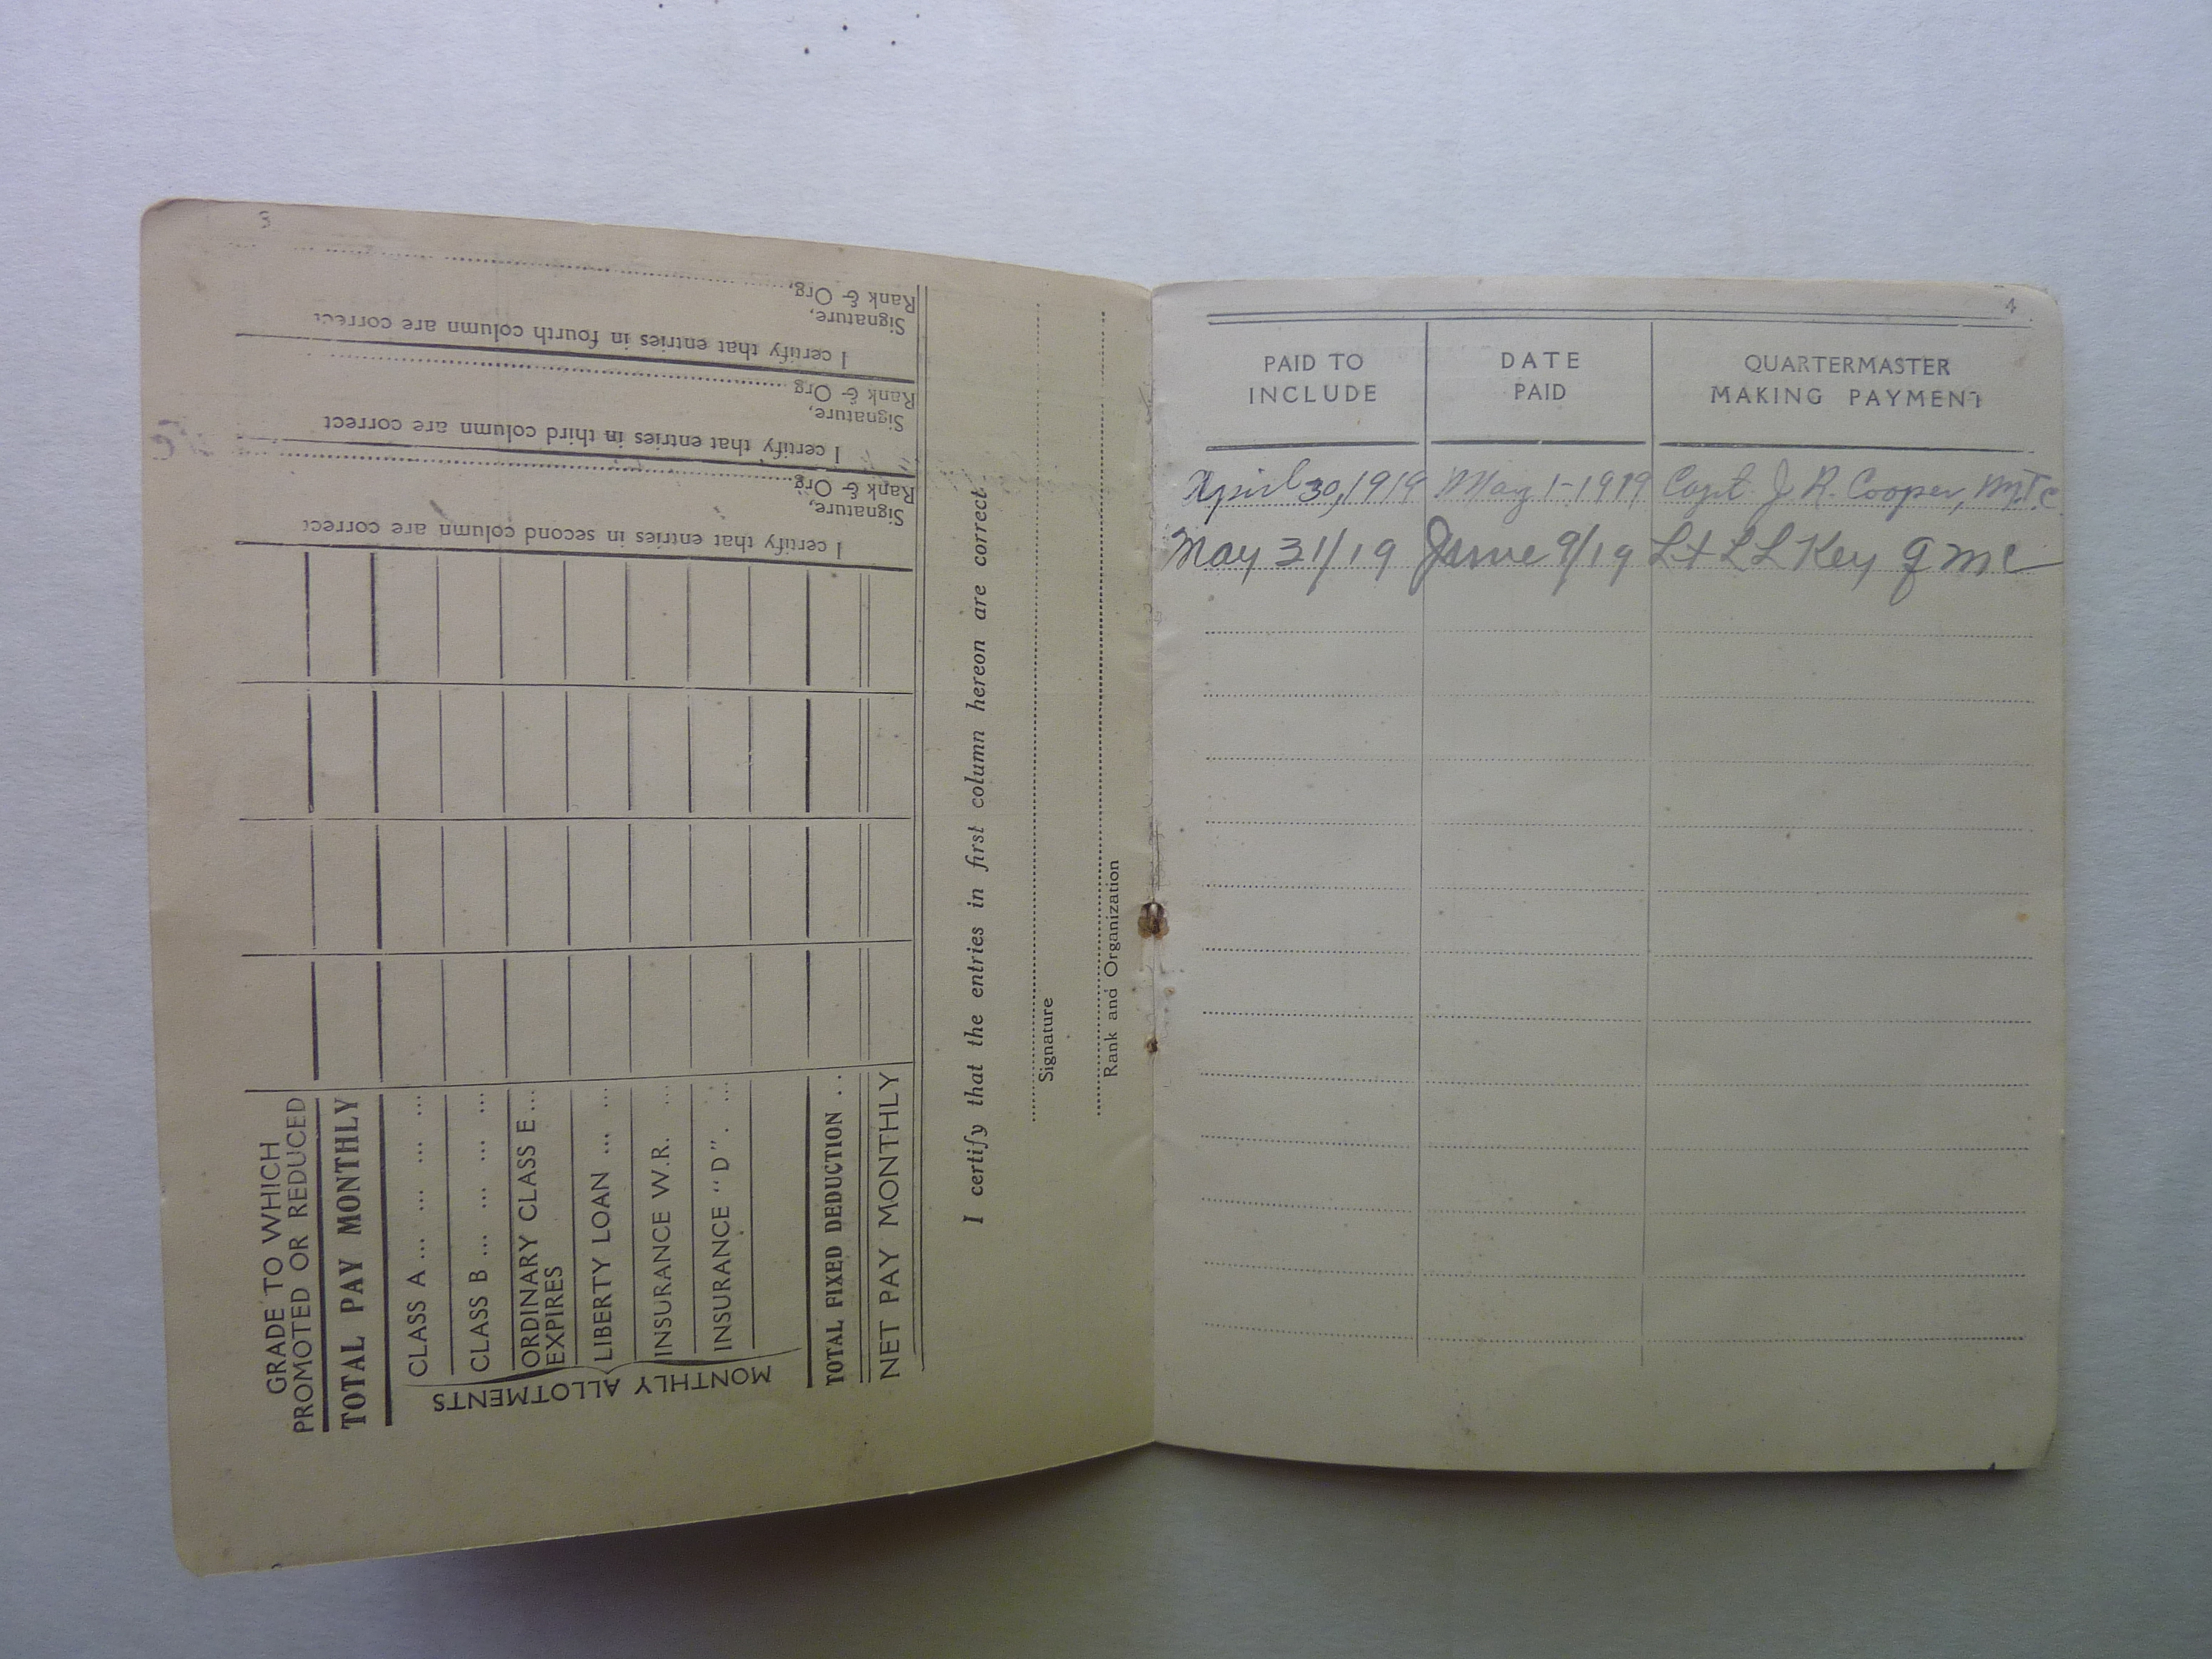 3
GRADE TO WHICH
PROMOTED OR REDUCED
TOTAL PAY MONTHLY
MONTHLY ALLOTMENTS
CLASS A ... ... ... ...
CLASS B ... ... ... ...
ORDINARY CLASS E ...
EXPIRES
LIBERTY LOAN ... ...
INSURANCE W.R. ...
INSURANCE "D". ...
TOTAL FIXED DEDUCTION . .
NET PAY MONTHLY
I certify that entries in second column are correct
Signature,
Rank & Org,
I certify that entries in third column are correct
Signature,
Rank & Org,
I certify that entries in fourth column are correct
Signature,
Rank & Org,
I certify that the entries in first column hereon are correct.
Signature
Rank and Organization
4
PAID TO
INCLUDE
DATE
PAID
QUARTERMASTER
MAKING PAYMENT
April 30, 1919 May 1-1919 Capt. J. R. Cooper, M.T.C.
May 31/19 June 9/19 Lt L L Key Q M C